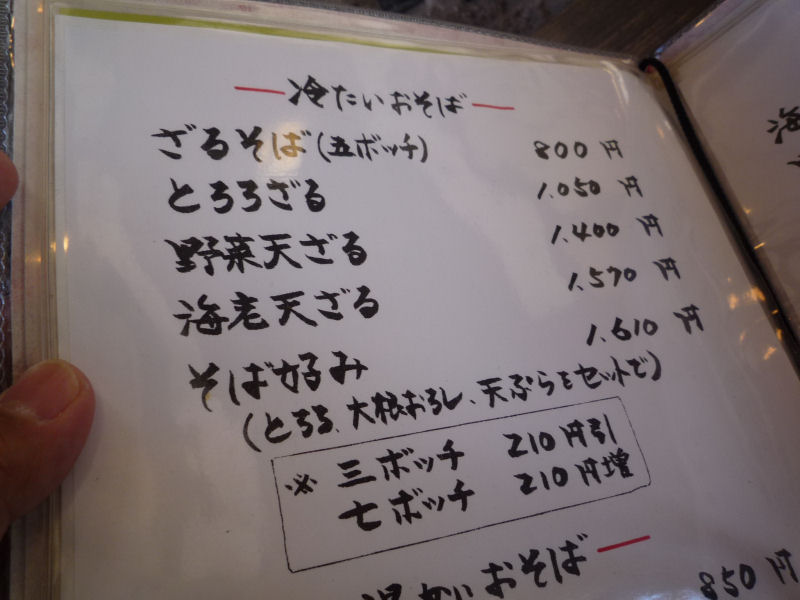 冷たいおそば
ざるそば(五ボッチ) 800円
とろろざる 1.050円
野菜天ざる 1.400円
海老天ざる 1.570円
そば好み 1.610円
(とろろ、大根おろし、天ぷらをセットで)
※ 三ボッチ 210円引
七ボッチ 210円増
温かいおそば
850円
海